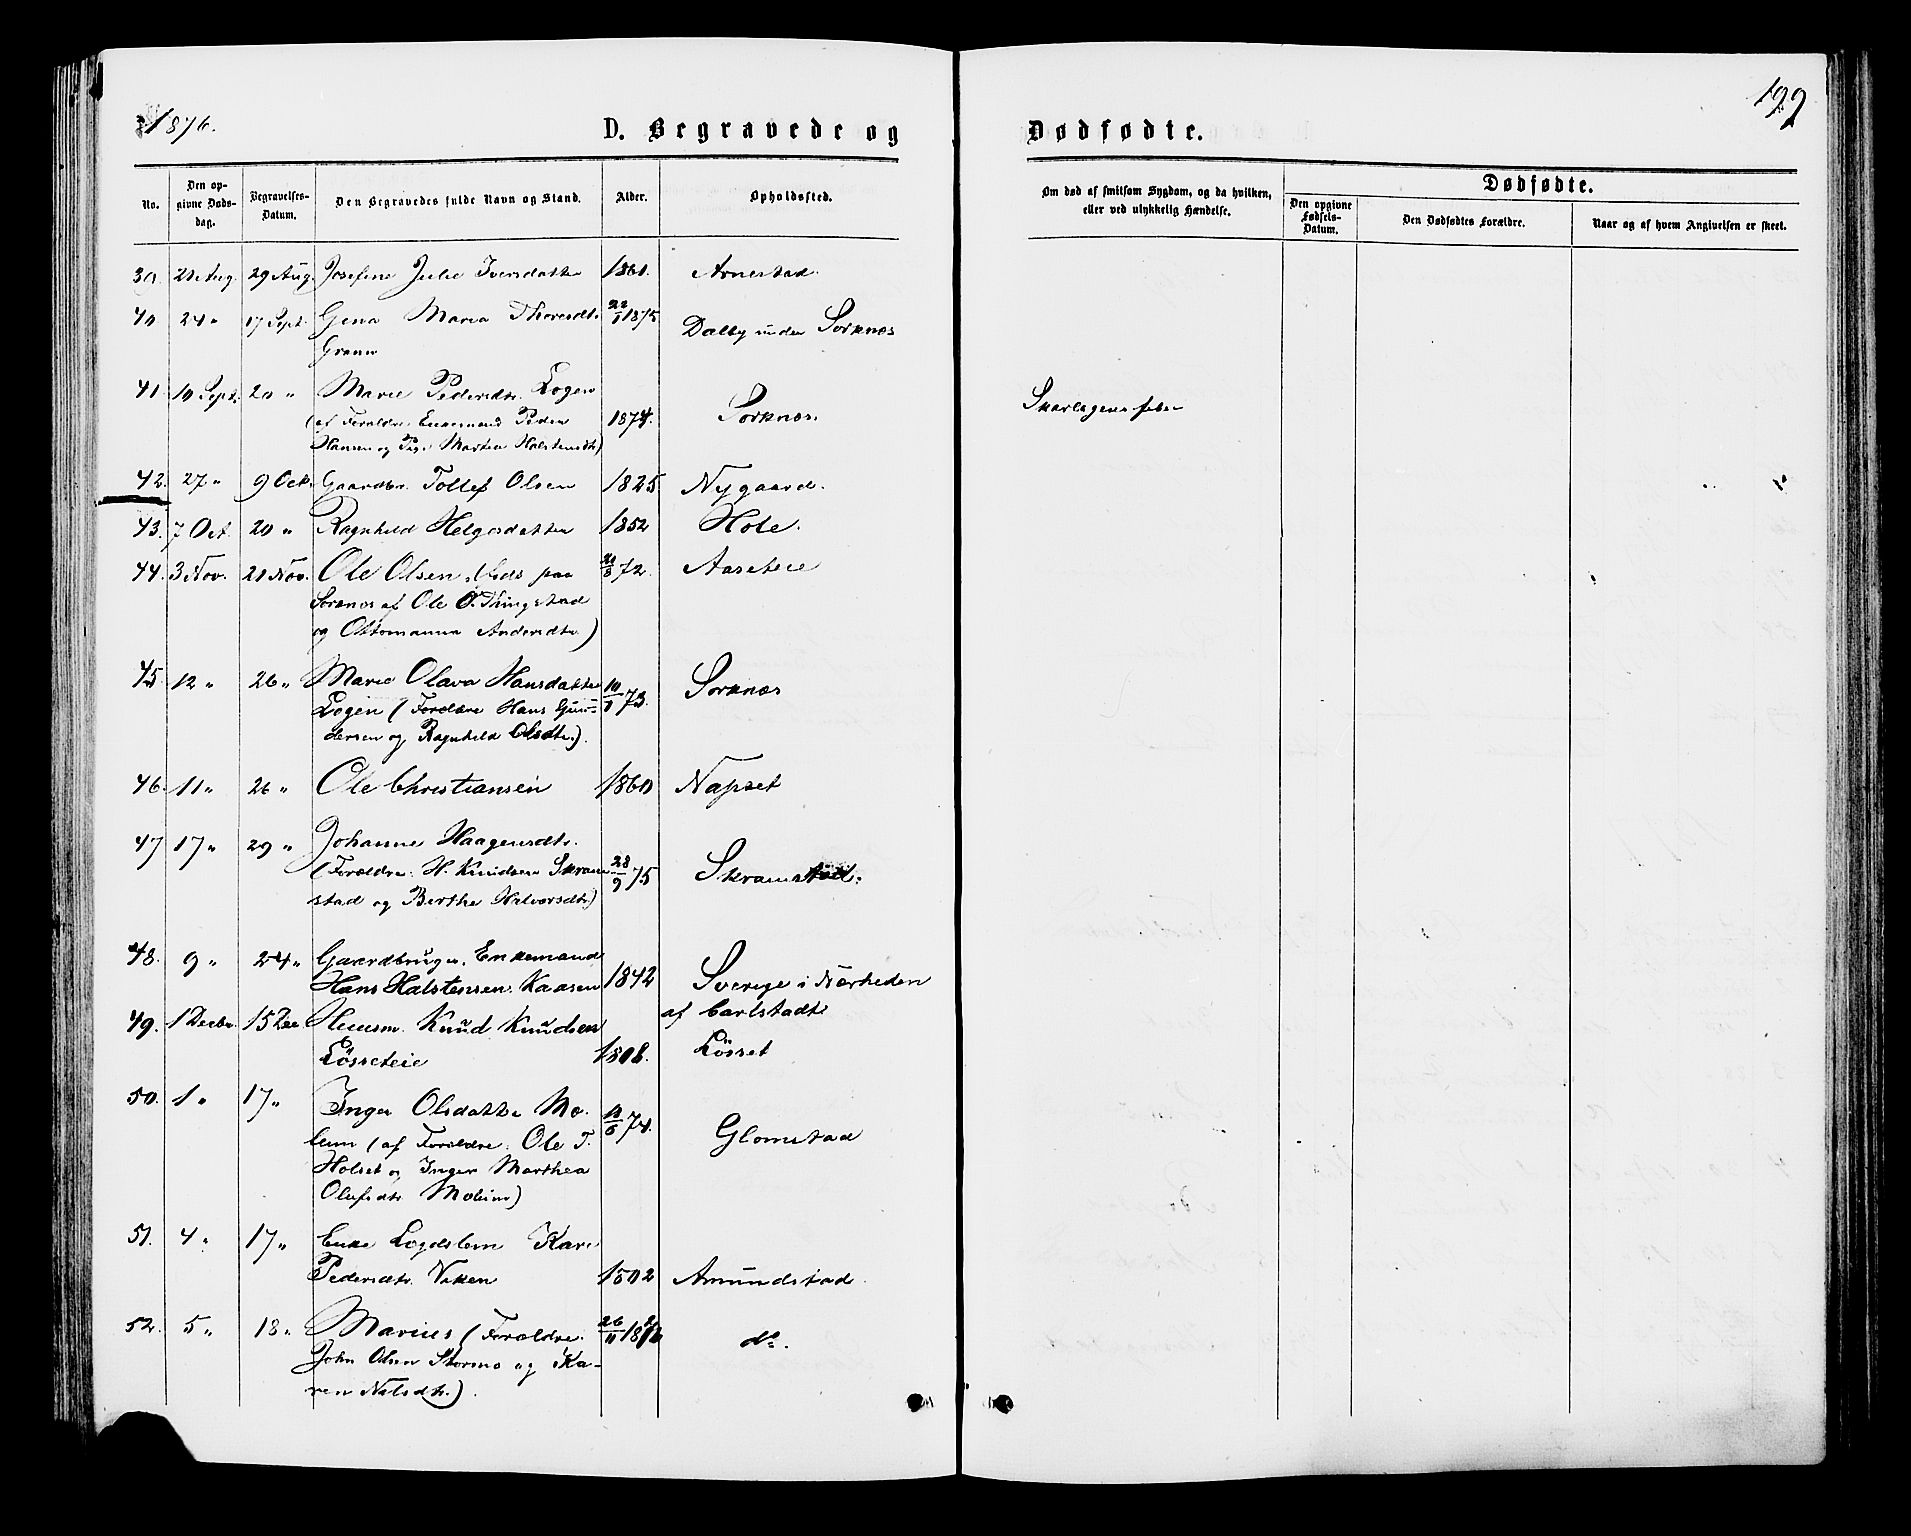 1876.
D. Begravede og
Dødfødte.
199
No.
Den opgivne Dødsdag.
Begravelses-Datum.
Den Begravedes fulde Navn og Stand.
Alder.
Opholdssted.
Om død af smitsom Sygdom, og da hvilken, eller ved ulykkelig Hændelse.
Dødfødte.
Den opgivne Fødsels-Datum.
Den Dødfødtes Forældre.
Naar og af hvem Angivelsen er skeet.
39. 21 Aug. 29 Aug. Josefine Julie Iversdatter 1861. Arnestad.
40. 24 " 17 Sept. Gina Maria Thoresdtr. 22/1 1875 Dalby under Sorknes
Graner
41. 10 Sept. 20 " Marie Pedersdtr. Logen
(af Forældre Enkemand Peder 1874. Sorknes. Skarlagensfeber
Hansen og Marthea Halstensdtr.)
42. 27 " 9 Oct. Gaardbr. Tollef Olsen 1825 Nygaard.
43. 7 Oct. 20 " Ragnhild Helgesdatter 1852 Hole.
44. 3 Nov. 21 Nov. Ole Olsen, (føds paa 72. Aaseteie
Sorknes af Ole O. Thingstad
og Ottomanna Andersdtr.)
45. 12 " 26 " Marie Olava Hansdatter 73. Sorknes
Logen (Forældre Hans Gun-
dersen og Ragnhild Olsdtr.).
46. 11 " 26 " Ole Christiansen 1860 Napset
47 17 " 29 " Johanne Haagensdtr.
(Forældre: H. Knudsen Skram- 28/9 75 Skramstad.
stad og Berthe Halvorsdtr.)
48. 9 " 24 " Gaardbruger, Enkemand
Hans Halstensen Kaasen 1842 Sverige i Nærheden
af Carlstadt
49. 1 Decbr. 15 Dec. Huusm. Knud Knudsen
Løsseteie 1808. Løsset
50. 1 " 17 " Inger Olsdatter Mo-
lium (af Forældre: Ole T. 74. Glomstad
Holset og Inger Marthea
Olufsdtr. Molium)
51. 4 " 17 " Enke Logdslem Kari
Pedersdtr. Naken 1802 Amundstad
52. 5 " 18 " Marius (Forældre: 26/11 1876 do.
John Olsen Stormo og Ka-
ren Nilsdtr.).